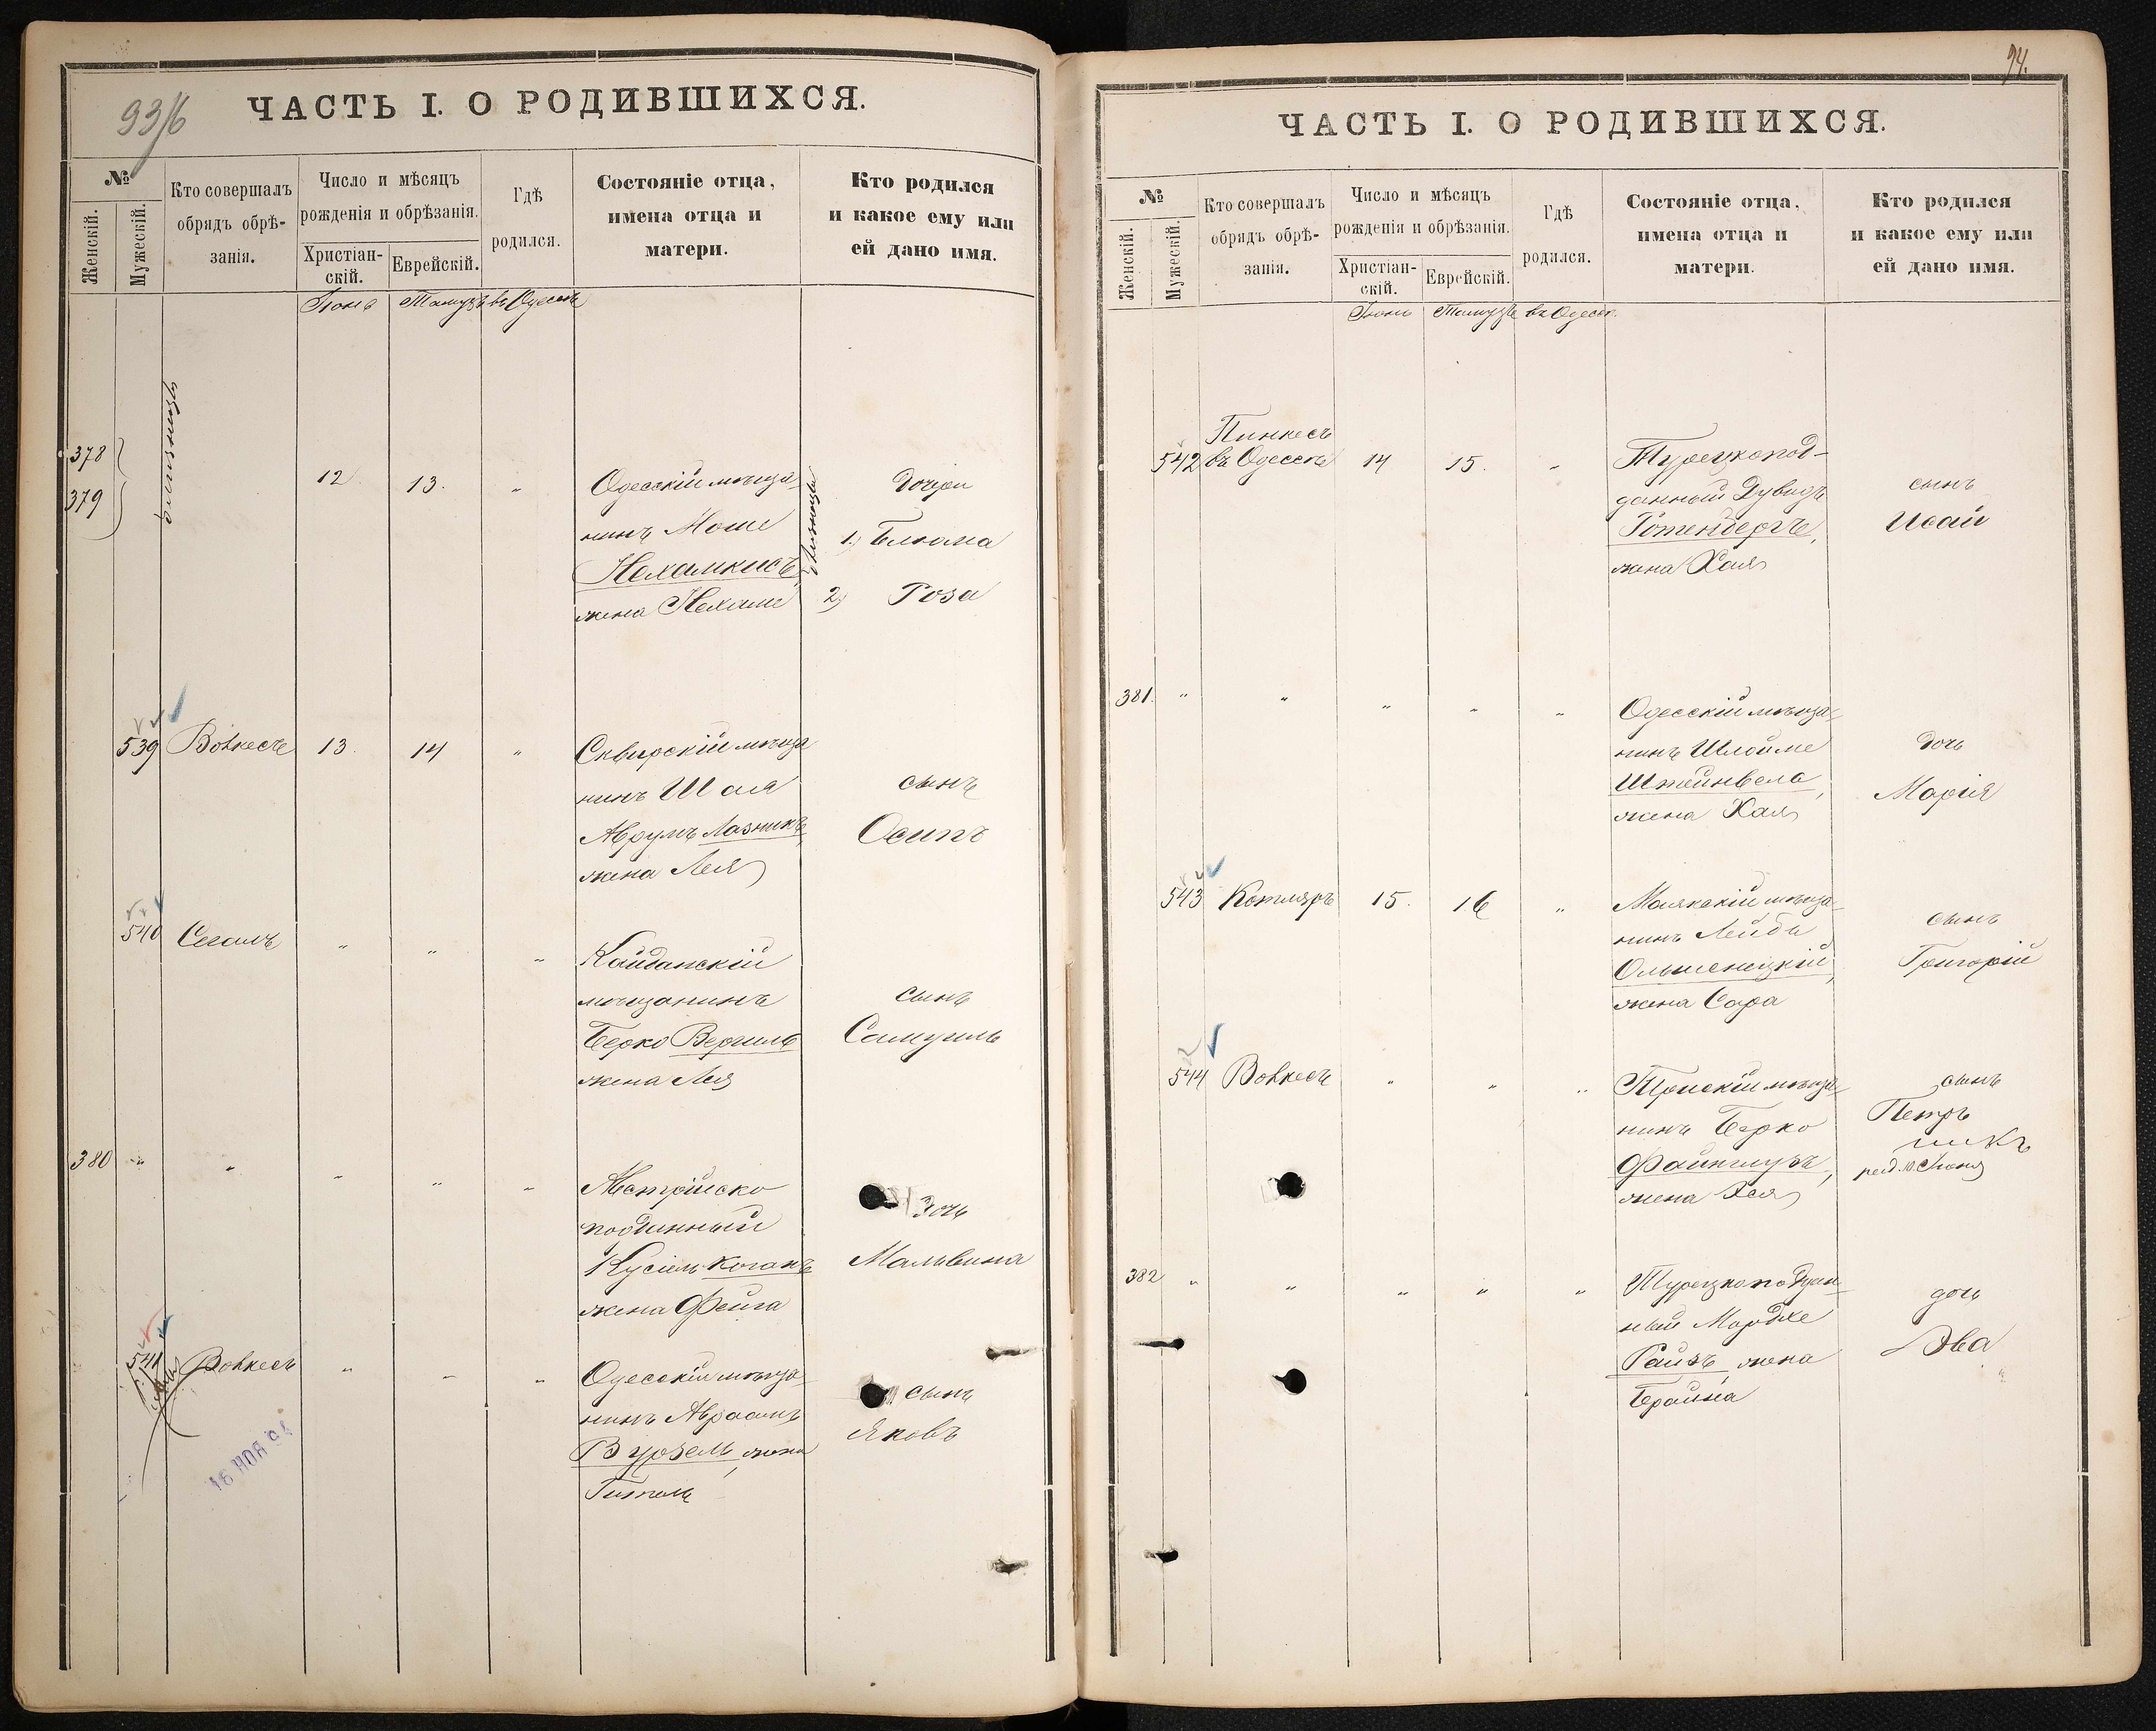 93/6
ЧАСТЬ I. О РОДИВШИХСЯ.
№
Женскій.
Мужескій.
Кто совершалъ
обрядъ обрѣ-
занія.
Число и мѣсяцъ
рожденія и обрѣзанія.
Христіан-
скій.
Еврейскій.
Гдѣ
родился.
Состояніе отца,
имена отца и
матери.
Кто родился
и какое ему или
ей дано имя.
Іюнь Тамузъ въ Одессѣ
378
379
близницы
12 13. „
Одесскій мѣща-
нинъ Моше
Нехамкисъ,
жена Нехама
близницы
дочери
1) Блюма
2) Роза
539 Вовкесъ 13. 14 „
Сквирскій мѣща
нинъ Шая
Аврумъ Лазникъ,
жена Лея
сынъ
Осипъ
540 Сегалъ „ „ „
Койданскій
мѣщанинъ
Берко Вергиль
жена Лея
сынъ
Самуиль
380 „ „ „ „ „
Австрійско
подданный
Кусіель Коганъ
жена Фейга
дочь
Мальвина
541 Вовкесъ „ „ „
Одесскій мѣща-
нинъ Авраамъ
Вурзель, жена
Гитель
сынъ
Яковъ
16 НОЯ 94
94.
ЧАСТЬ I. О РОДИВШИХСЯ.
№
Женскій.
Мужескій.
Кто совершалъ
обрядъ обрѣ-
занія.
Число и мѣсяцъ
рожденія и обрѣзанія.
Христіан-
скій.
Еврейскій.
Гдѣ
родился.
Состояніе отца,
имена отца и
матери.
Кто родился
и какое ему или
ей дано имя.
Іюнь Тамузъ въ Одессѣ.
Пинкесъ
542 въ Одессѣ 14 15. „
Турецкопод-
данный Дувидъ
Готенбергъ,
жена Хая
сынъ
Исай
381. „ „ „ „ „
Одесскій мѣща-
нинъ Шлойме
Штейнвела,
жена Хая
дочь
Марія
543 Котляръ 15. 16 „
Маякскій мѣща-
нинъ Лейба
Ольшенецкій,
жена Сара
сынъ
Григорій
544 Вовкесъ „ „ „
Трискій мѣща-
нинъ Берко
Файнгшузъ,
жена Хая
сынъ
Петръ
род. 10 Іюня
382 „ „ „ „ „
Турецкоподдан-
ный Мордке
Райзъ, жена
Брайна
дочь
Эва